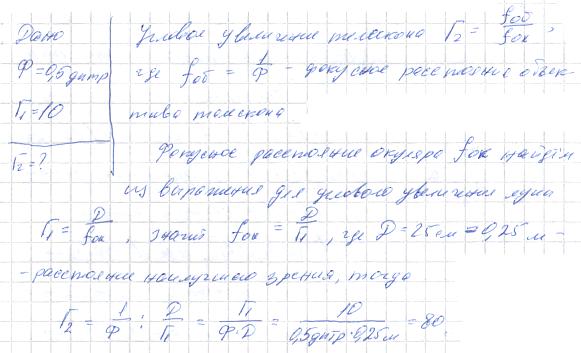 Дано
Ф = 0,5 дптр
Г₁ = 10
Г₂ = ?
Угловое увеличение телескопа Г₂ = fоб/fок,
где fоб = 1/Ф - фокусное расстояние объек-
тива телескопа
Фокусное расстояние окуляра fок найдём
из выражения для углового увеличения лупы
Г₁ = D/fок, значит fок = D/Г₁, где D = 25 см = 0,25 м -
- расстояние наилучшего зрения, тогда
Г₂ = 1/Ф : D/Г₁ = Г₁/Ф·D = 10/0,5дптр·0,25м = 80.